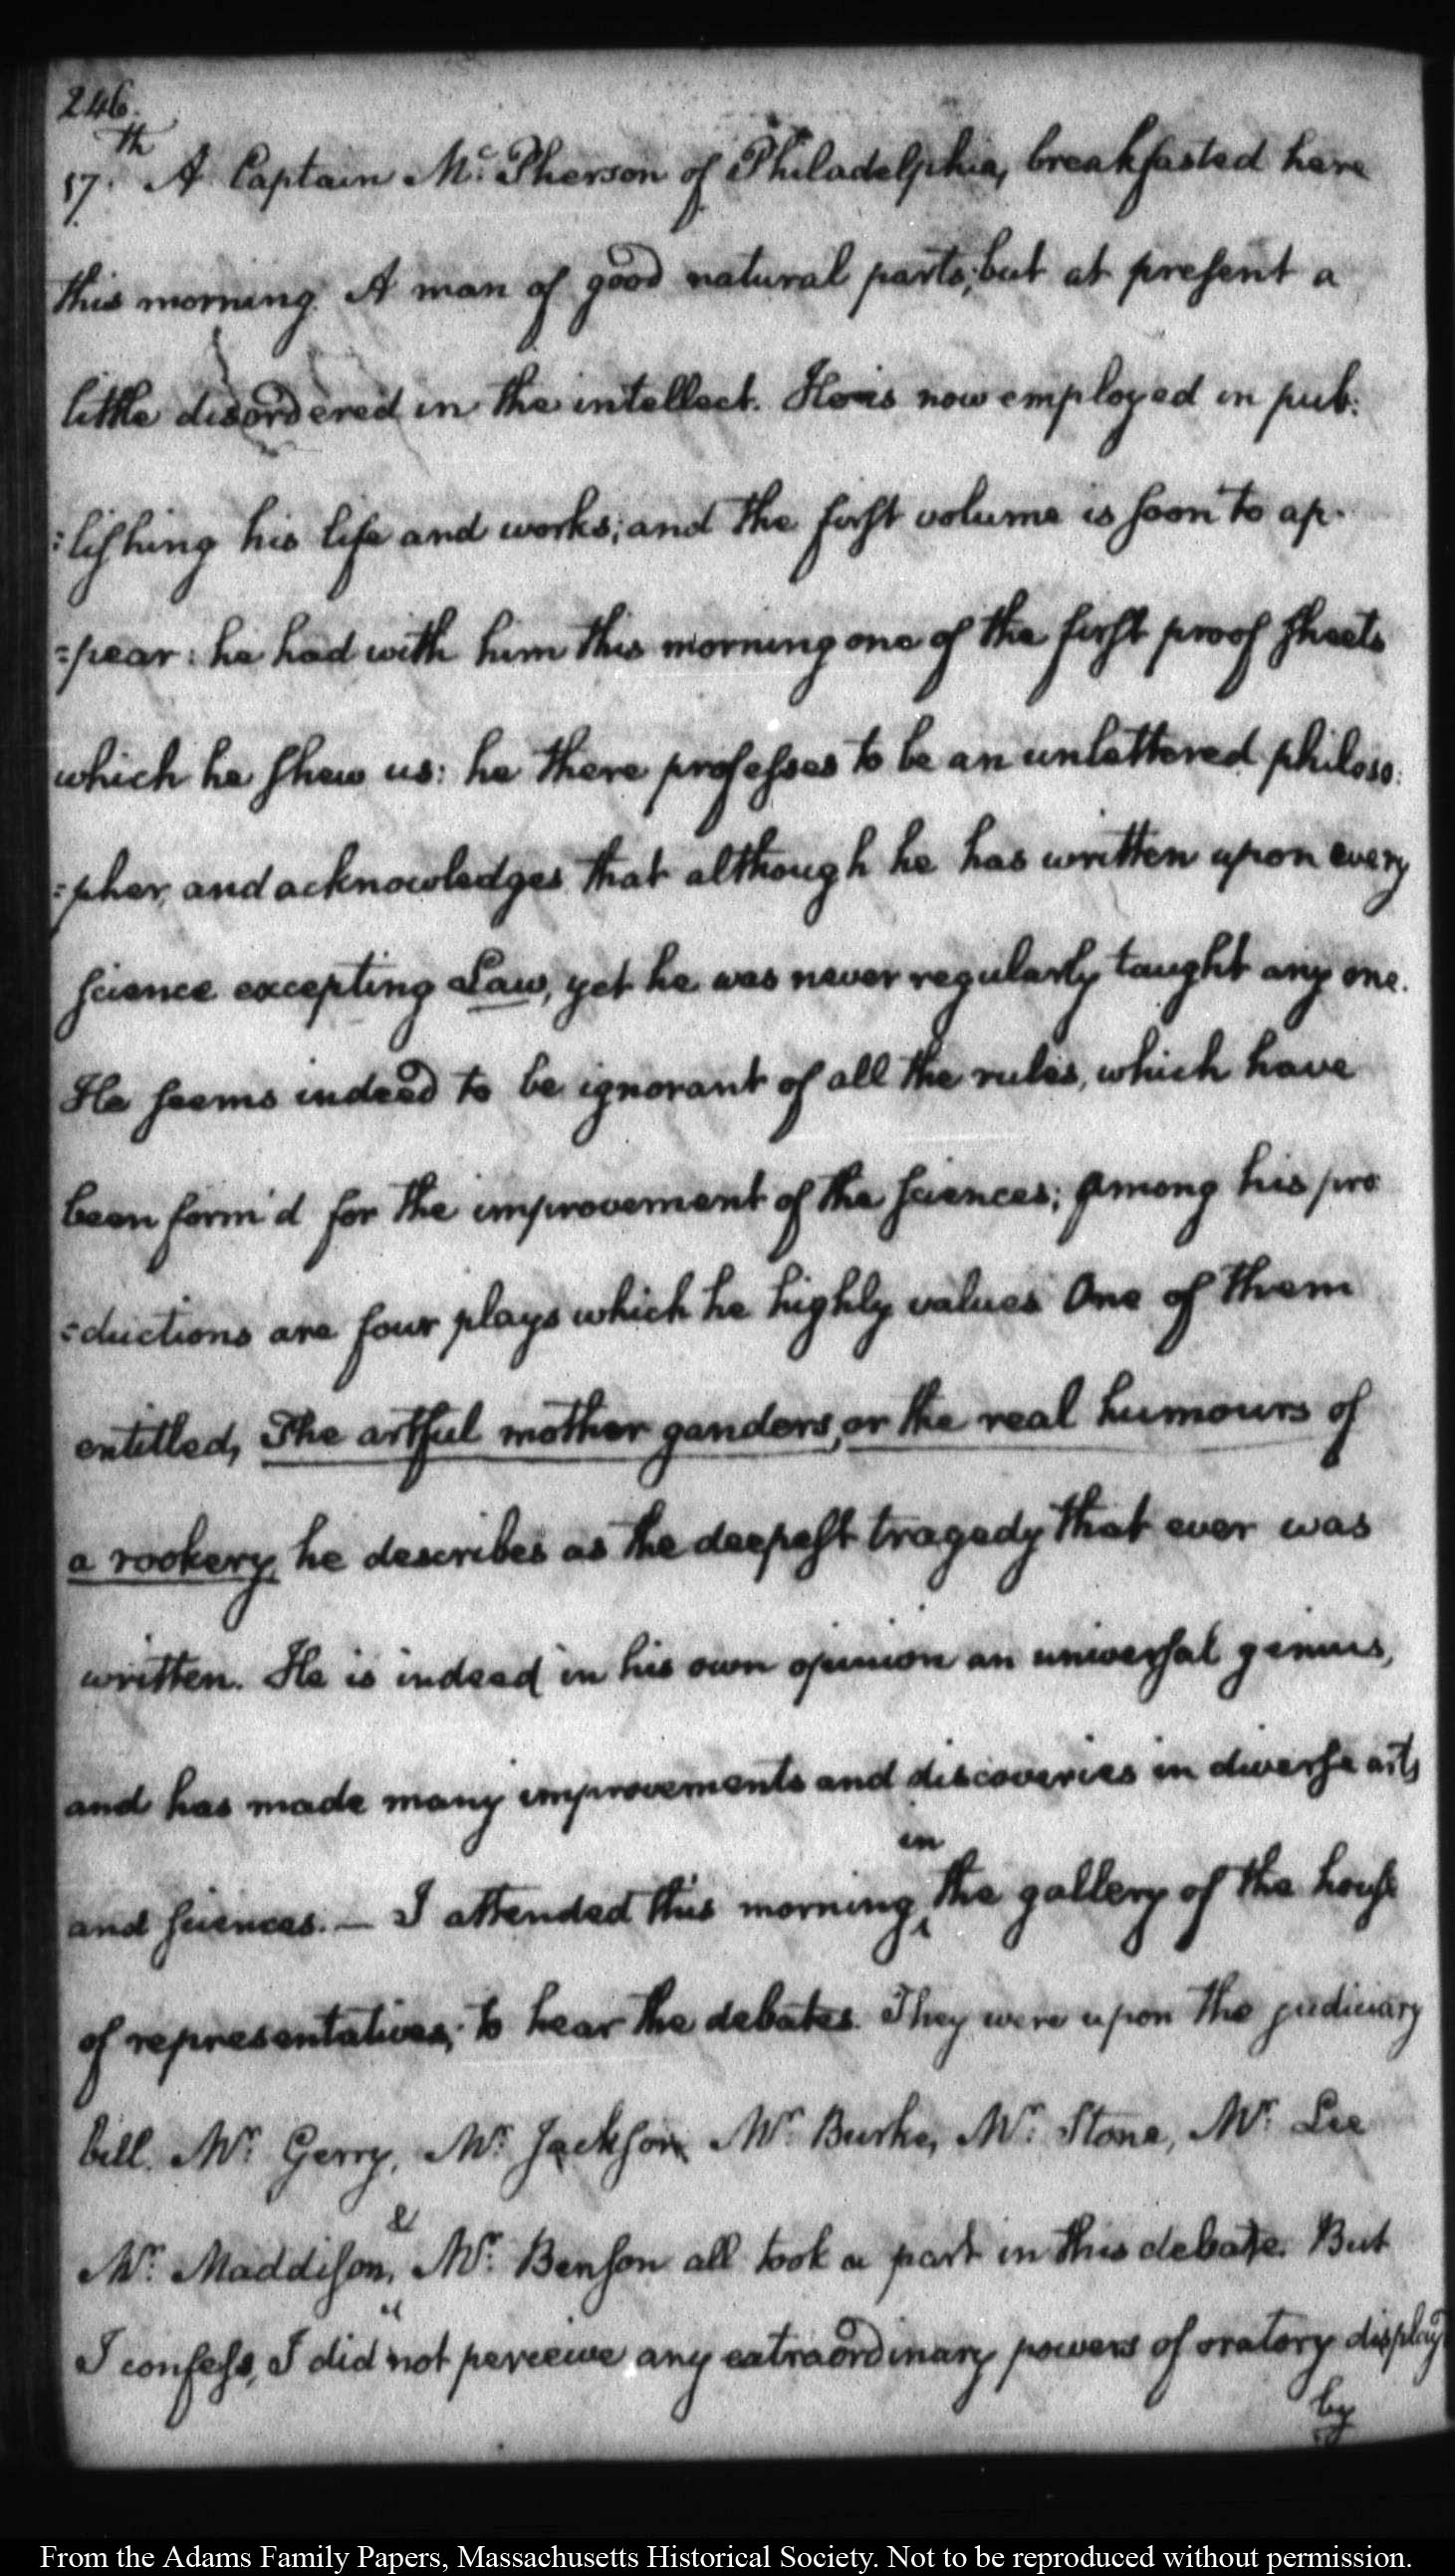 246.
17.th A Captain Mc. Pherson of Philadelphia, breakfasted here
this morning. A man of good natural parts; but at present a
little disordered in the intellect. He is now employed in pub:
:lishing his life and works; and the first volume is soon to ap-
:pear: he had with him this morning one of the first proof sheets
which he shew us: he there professes to be an unlettered philoso:
:pher, and acknowledges that although he has written upon every
science excepting Law, yet he was never regularly taught any one.
He seems indeed to be ignorant of all the rules, which have
been form'd for the improvement of the sciences; among his pro
:ductions are four plays which he highly values One of them
entitled, The artful mother ganders, or the real humours of
a rookery, he describes as the deepest tragedy that ever was
written. He is indeed in his own opinion an universal genius,
and has made many improvements and discoveries in diverse arts
and sciences. — I attended this morning in the gallery of the house
of representatives; to hear the debates. They were upon the judiciary
bill. Mr. Gerry, Mr. Jackson Mr. Burke, Mr. Stone, Mr. Lee
Mr. Maddison, & Mr. Benson all took a part in this debate. But
I confess, I did not perceive any extraordinary powers of oratory display'd
by
From the Adams Family Papers, Massachusetts Historical Society. Not to be reproduced without permission.